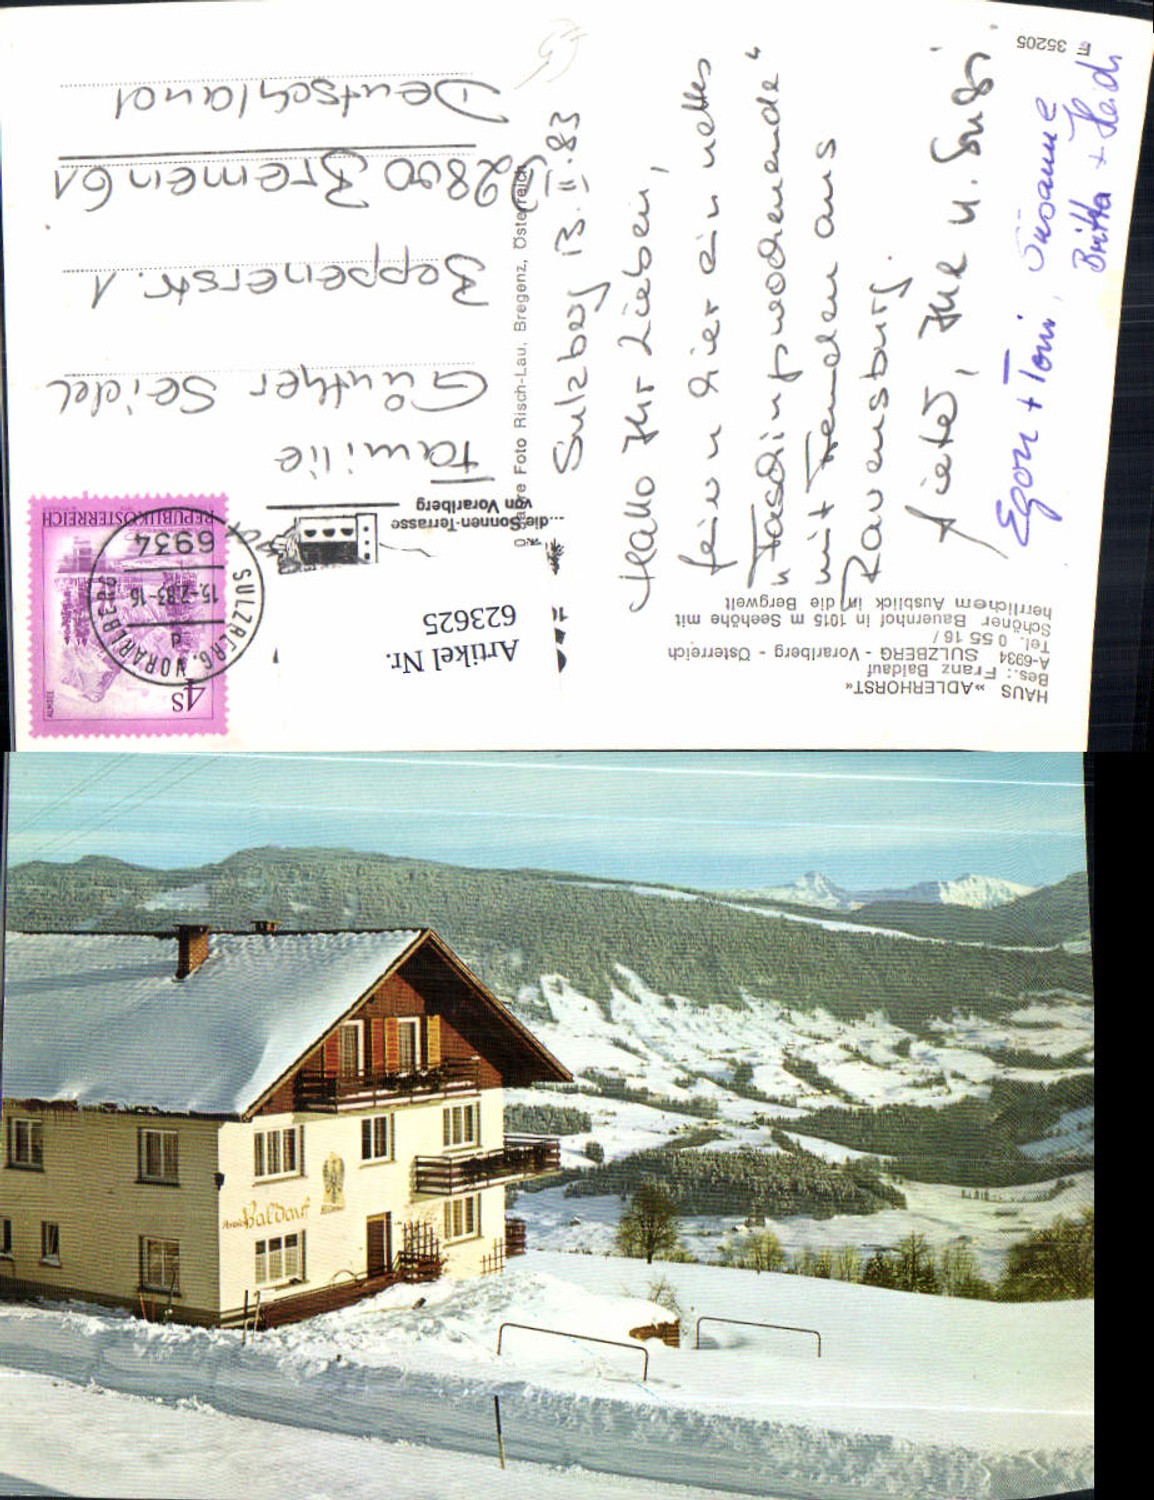 HAUS »ADLERHORST«
Bes.: Franz Baldauf
A-6934 SULZBERG - Vorarlberg - Österreich
Tel. 0 55 16 /
Schöner Bauernhof in 1015 m Seehöhe mit
herrlichem Ausblick in die Bergwelt
Artikel Nr.
623625
4S
ALMSEE
REPUBLIK ÖSTERREICH
SULZBERG, VORARLBERG
15.-2.83-16
6934
...die Sonnen-Terrasse
von Vorarlberg
Foto Risch-Lau, Bregenz, Österreich
E 35205
Familie
Günther Seidel
Beppenerstr. 1
2800 Bremen 61
Deutschland
Sulzberg 13.II.83
Hallo Ihr Lieben,
feiern hier ein nettes
„Faschingswochenende“
mit Freunden aus
Ravensburg.
Dieter, Ihr u. Susi
Egon + Toni, Susanne
Britta + Heidi
Baldauf